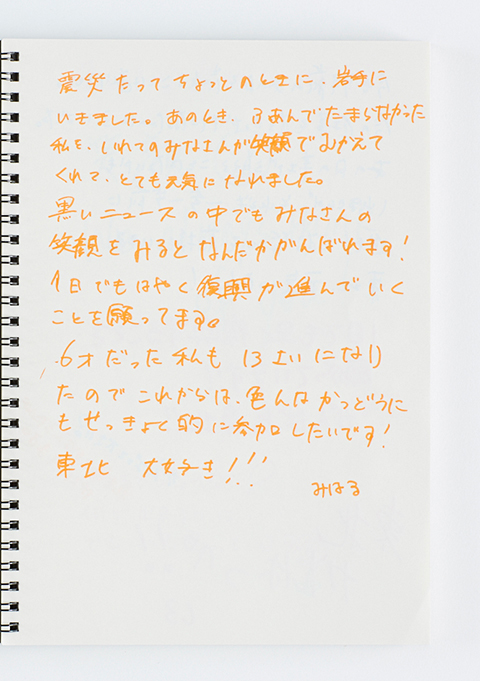 震災たってちょっとのときに、岩手に
いきました。あのとき、ふあんでたまらなかった
私を、いわてのみなさんが笑顔でむかえて
くれて、とても元気になれました。
黒いニュースの中でもみなさんの
笑顔をみるとなんだかがんばれます!
1日でもはやく復興が進んでいく
ことを願ってます。
6才だった私も13さいになり
たのでこれからは、色んなかつどうに
もせっきょく的に参加したいです!
東北 大好き!!!
みはる